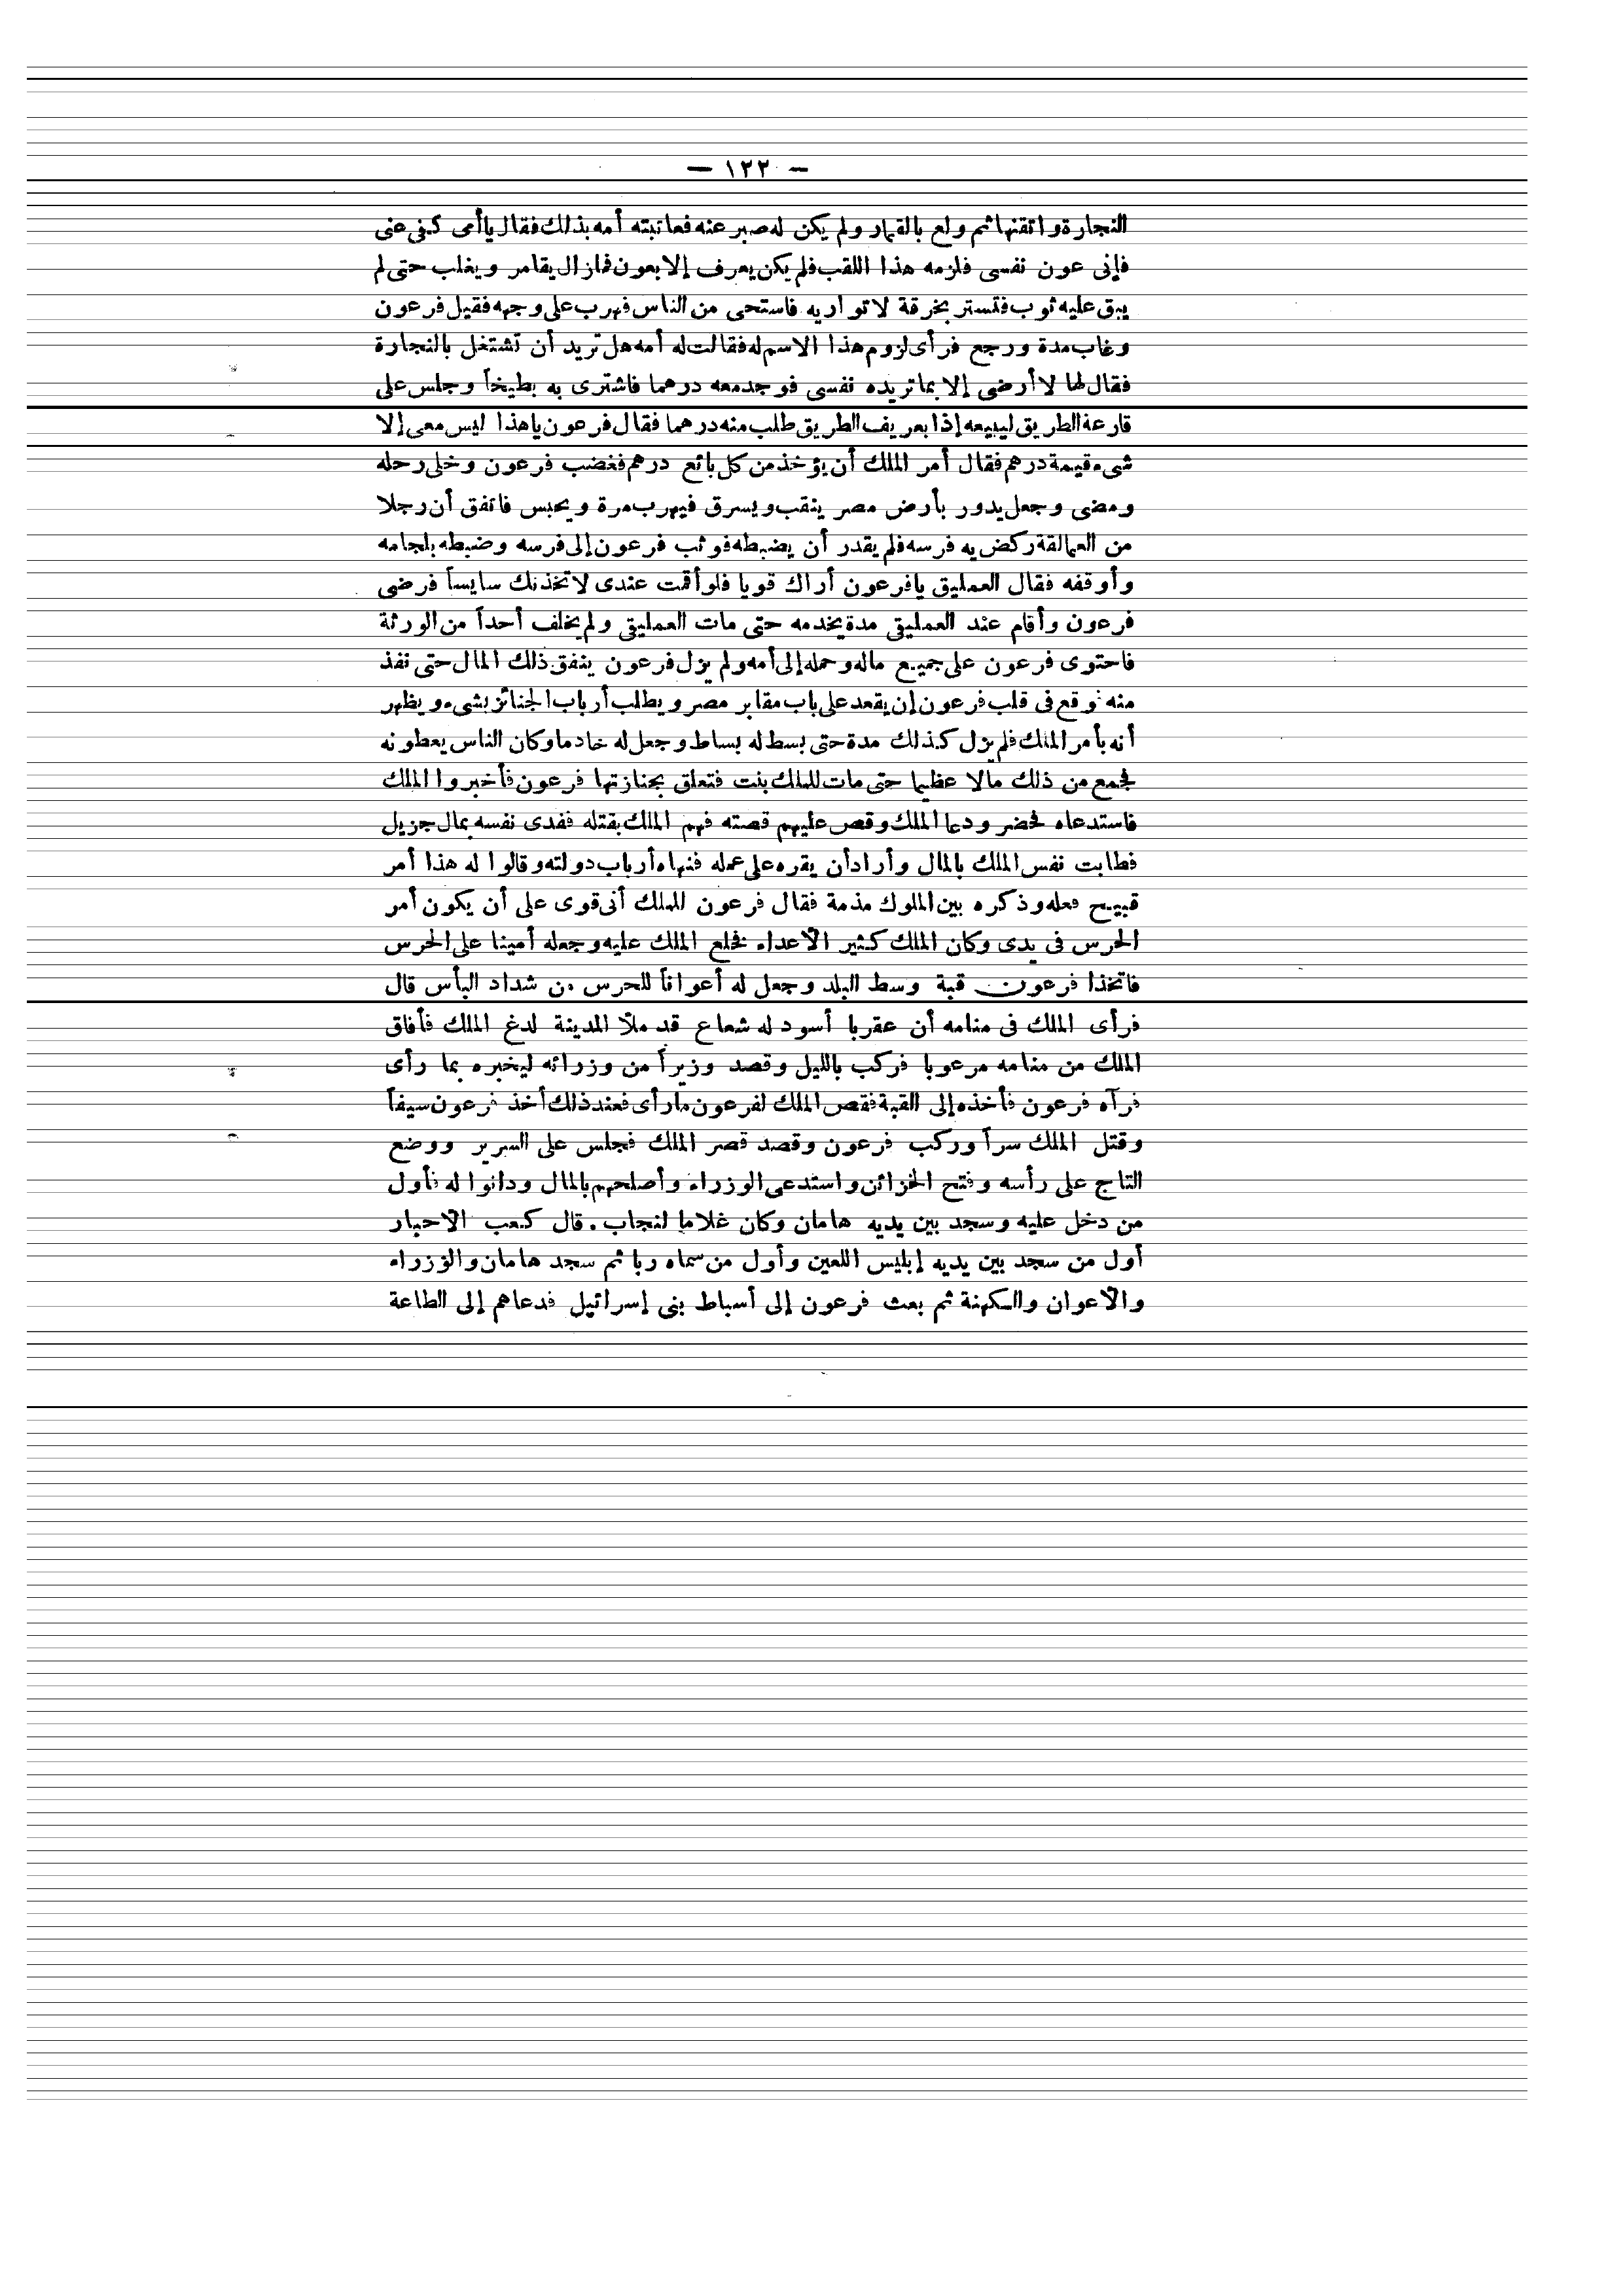 — ١٢٢ —
النجارة واتقنها ثم ولع بالقمار ولم يكن له صبر عنه فعاتبته أمه بذلك فقال ياأمى كفى عنى
فإنى عون نفسى فلزمه هذا اللقب فلم يكن يعرف إلا بعون فمازال يقامر ويغلب حتى لم
يبق عليه ثوب فتستر بخرقة لا تواريه فاستحى من الناس فهرب على وجهه فقيل فرعون
وغاب مدة ورجع فرأى لزوم هذا الاسم له فقالت له أمه هل تريد أن تشتغل بالنجارة
فقال لها لا أرضى إلا بما تريده نفسى فوجد معه درهما فاشترى به بطيخاً وجلس على
قارعة الطريق ليبيعه إذا بعريف الطريق طلب منه درهما فقال فرعون ياهذا ليس معى إلا
شىء قيمة درهم فقال أمر الملك أن يؤخذ من كل بائع درهم فغضب فرعون وخلى رحله
ومضى وجعل يدور بأرض مصر ينقب ويسرق فيهرب مرة ويحبس فاتفق أن رجلا
من العمالقة ركض به فرسه فلم يقدر أن يضبطه فوثب فرعون إلى فرسه وضبطه بلجامه
وأوقفه فقال العمليق يافرعون أراك قويا فلو أقمت عندى لاتخذنك سايساً فرضى
فرعون وأقام عند العمليقى مدة يخدمه حتى مات العمليقى ولم يخلف أحداً من الورثة
فاحتوى فرعون على جميع ماله وحمله إلى أمه ولم يزل فرعون ينفق ذلك المال حتى نفذ
منه فوقع فى قلب فرعون إن يقعد على باب مقابر مصر ويطلب أرباب الجنائز بشىء ويظهر
أنه بأمر الملك فلم يزل كذلك مدة حتى بسط له بساط وجعل له خادما وكان الناس يعطونه
فجمع من ذلك مالا عظيما حتى مات للملك بنت فتعلق بجنازتها فرعون فأخبروا الملك
فاستدعاه فحضر ودعا الملك وقص عليهم قصته فهم الملك بقتله ففدى نفسه بمال جزيل
فطابت نفس الملك بالمال وأراد أن يقره على عمله فنهاه أرباب دولته وقالوا له هذا أمر
قبيح فعله وذكره بين الملوك مذمة فقال فرعون للملك أنى قوى على أن يكون أمر
الحرس فى يدى وكان الملك كثير الأعداء فخلع الملك عليه وجعله أمينا على الحرس
فاتخذا فرعون قبة وسط البلد وجعل له أعواناً للحرس من شداد البأس قال
فرأى الملك فى منامه أن عقربا أسود له شعاع قد ملأ المدينة لدغ الملك فأفاق
الملك من منامه مرعوبا فركب بالليل وقصد وزيراً من وزرائه ليخبره بما رأى
فرآه فرعون فأخذه إلى القبة فقص الملك لفرعون مارأى فعند ذلك أخذ فرعون سيفاً
وقتل الملك سراً وركب فرعون وقصد قصر الملك فجلس على السرير ووضع
التاج على رأسه وفتح الخزائن واستدعى الوزراء وأصلحهم بالمال ودانوا له فأول
من دخل عليه وسجد بين يديه هامان وكان غلاما لنجاب . قال كعب الاحبار
أول من سجد بين يديه إبليس اللعين وأول من سماه ربا ثم سجد هامان والوزراء
والأعوان والكهنة ثم بعث فرعون إلى أسباط بنى إسرائيل فدعاهم إلى الطاعة